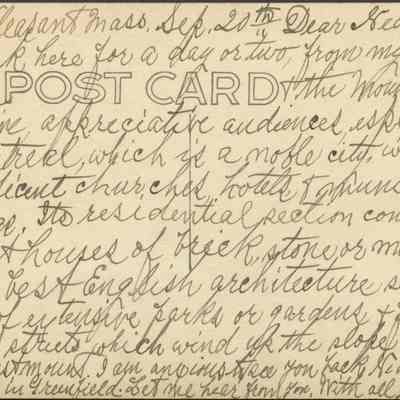 leasant Mass. Sep. 20th Dear Ned
k here for a day or two, from my
POST CARD
+ the Mon
ive, appreciative audiences, esp
treal, which is a noble city, w
ificent churches, hotels & muni
Its residential section con
+ houses of brick, stone, or m
best English architecture s
of extensive parks or gardens, &
streets which wind up the slope
I am anxious to see you back
in Greenfield. Let me hear from you. With all